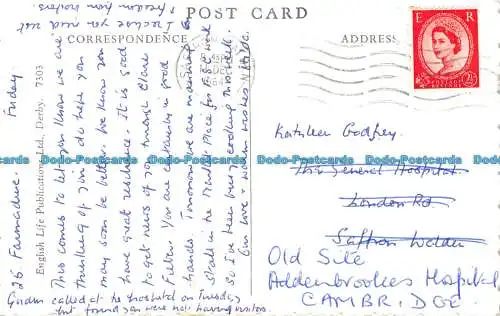 POST CARD
CORRESPONDENCE
ADDRESS
E R
POSTAGE
2½D
DEC
1964
English Life Publications Ltd., Derby. 7303
26 Farmadine. Friday
This comes to let you know we are
thinking of you & do hope you
may soon be better. We know you
have great resilience. It is good
to get news of you through Clare
Fuller. You are certainly in good
hands. Tomorrow we are
stall in the Market Place for
So I've been busy cooking
love & warm wishes
I realise you need rest
& freedom from visitors
Gordon called at the hospital on Tuesday
but found you were not having visitors.
Kathleen Godfrey.
The General Hospital
London Rd
Saffron Walden
Old Site
Addenbrookes Hospital
CAMBRIDGE
Dodo-Postcards Dodo-Postcards Dodo-Postcards Dodo-Postcards Dodo-Postcards